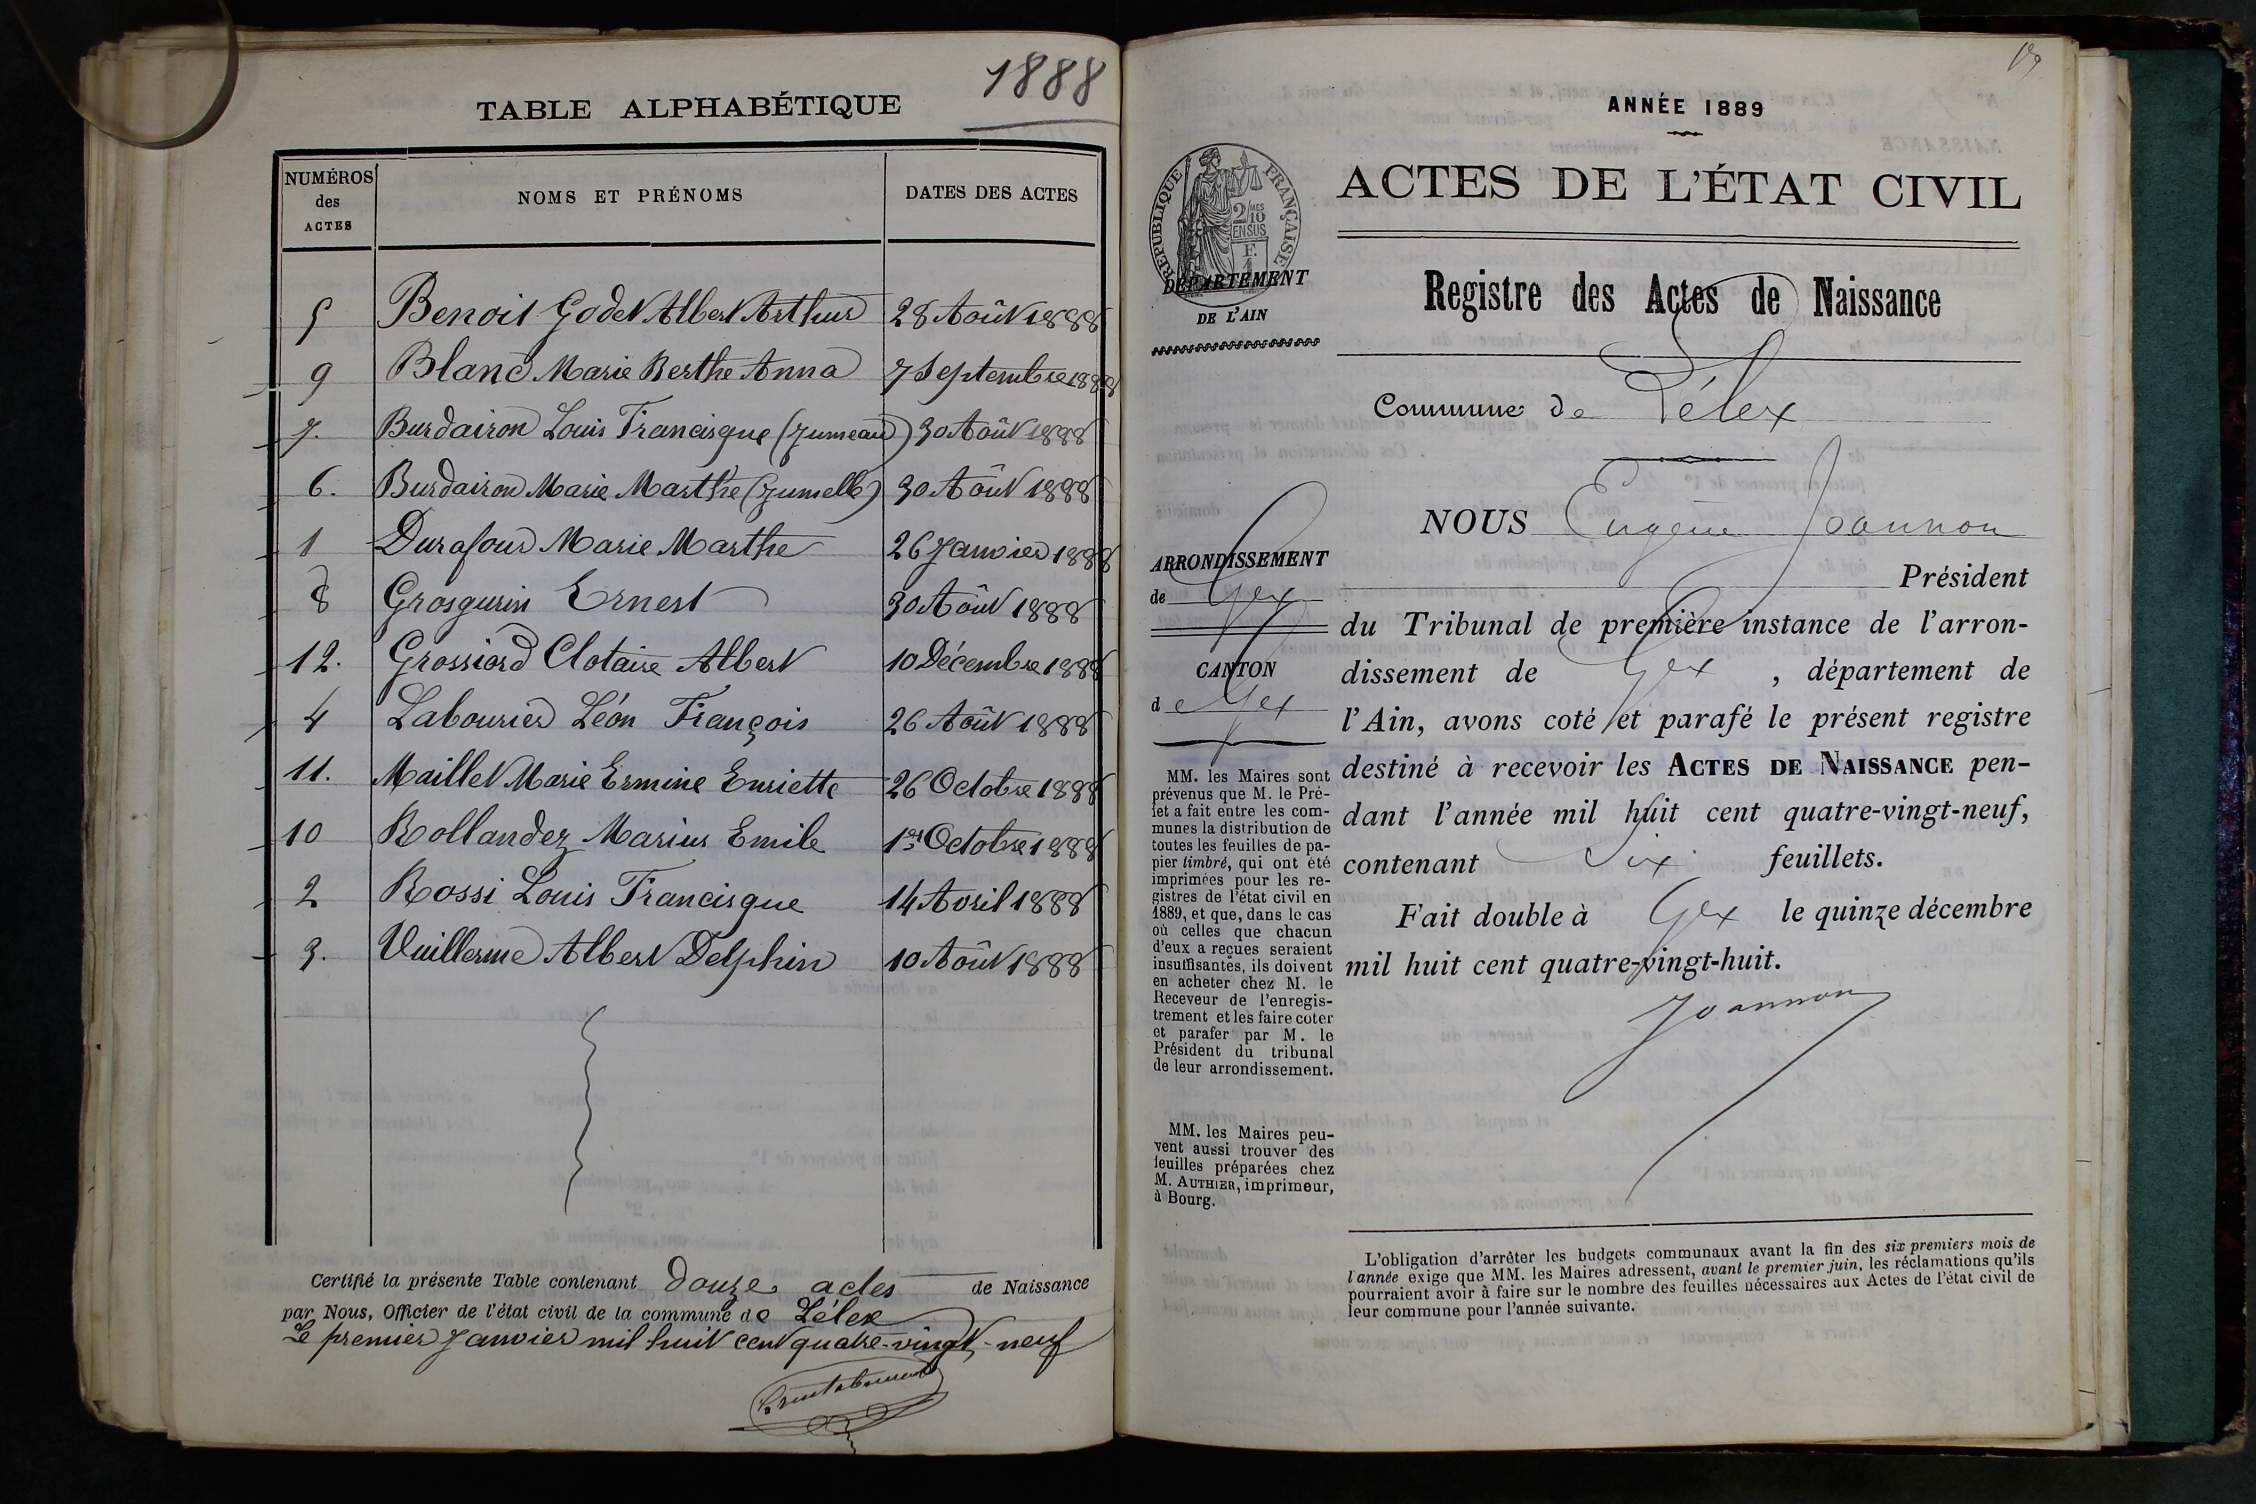 1888
TABLE ALPHABÉTIQUE
NUMÉROS des ACTES NOMS ET PRÉNOMS DATES DES ACTES
5 Benoit Godet Albert Arthur 28 Août 1888
9 Blanc Marie Berthe Anna 7 Septembre 1888
7. Burdairon Louis Francisque (Jumeau) 30 Août 1888
6. Burdairon Marie Marthe (Jumelle) 30 Août 1888
1 Durafour Marie Marthe 26 Janvier 1888
8 Grosgurin Ernest 30 Août 1888
12. Grossiord Clotaire Albert 10 Décembre 1888
4 Labourier Léon François 26 Août 1888
11. Maillet Marie Ermine Enriette 26 Octobre 1888
10 Rollandez Marius Emile 1er Octobre 1888
2 Rossi Louis Francisque 14 Avril 1888
3. Vuillerme Albert Delphin 10 Août 1888
Certifié la présente Table contenant douze actes de Naissance
par Nous, Officier de l'état civil de la commune de Lélex
Le premier Janvier mil huit cent quatre-vingt-neuf
ANNÉE 1889
ACTES DE L'ÉTAT CIVIL
RÉPUBLIQUE FRANÇAISE
2/10 MES
EN SUS
F.
1
DÉPARTEMENT
DE L'AIN
Registre des Actes de Naissance
Commune de Lélex
NOUS Eugène Joannon
Président
du Tribunal de première instance de l'arron-
dissement de Gex, département de
l'Ain, avons coté et parafé le présent registre
destiné à recevoir les ACTES DE NAISSANCE pen-
dant l'année mil huit cent quatre-vingt-neuf,
contenant Six feuillets.
Fait double à Gex le quinze décembre
mil huit cent quatre-vingt-huit.
Joannon
ARRONDISSEMENT
de Gex
CANTON
de Gex
MM. les Maires sont
prévenus que M. le Pré-
fet a fait entre les com-
munes la distribution de
toutes les feuilles de pa-
pier timbré, qui ont été
imprimées pour les re-
gistres de l'état civil en
1889, et que, dans le cas
où celles que chacun
d'eux a reçues seraient
insuffisantes, ils doivent
en acheter chez M. le
Receveur de l'enregis-
trement et les faire coter
et parafer par M. le
Président du tribunal
de leur arrondissement.
MM. les Maires peu-
vent aussi trouver des
feuilles préparées chez
M. AUTHIER, imprimeur,
à Bourg.
L'obligation d'arrêter les budgets communaux avant la fin des six premiers mois de
l'année exige que MM. les Maires adressent, avant le premier juin, les réclamations qu'ils
pourraient avoir à faire sur le nombre des feuilles nécessaires aux Actes de l'état civil de
leur commune pour l'année suivante.